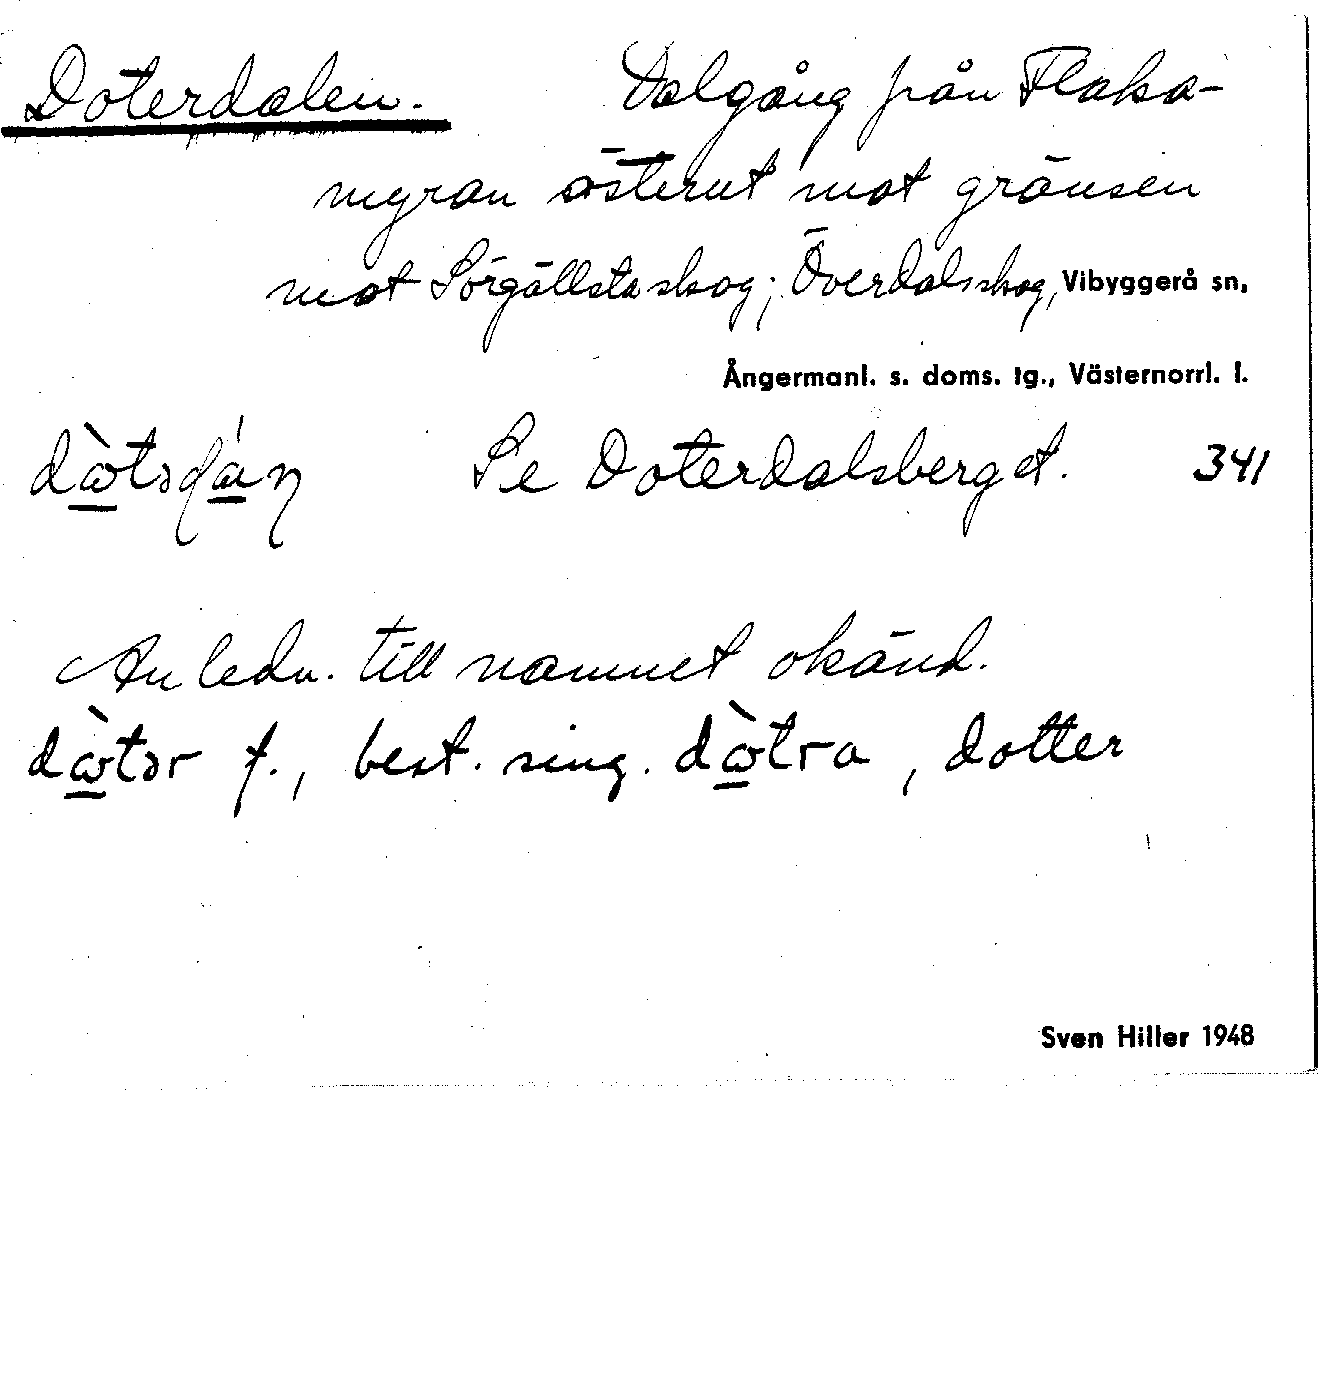 Doterdalen. Dalgång från Flaka-
myran österut mot gränsen
mot Sörgällsta skog; Överdalsskog, Vibyggerå sn,
Ångermanl. s. doms. tg., Västernorrl. l.
Se Doterdalsberget. 341
Anledn. till namnet okänd.
f., best. sing. , dotter
Sven Hiller 1948